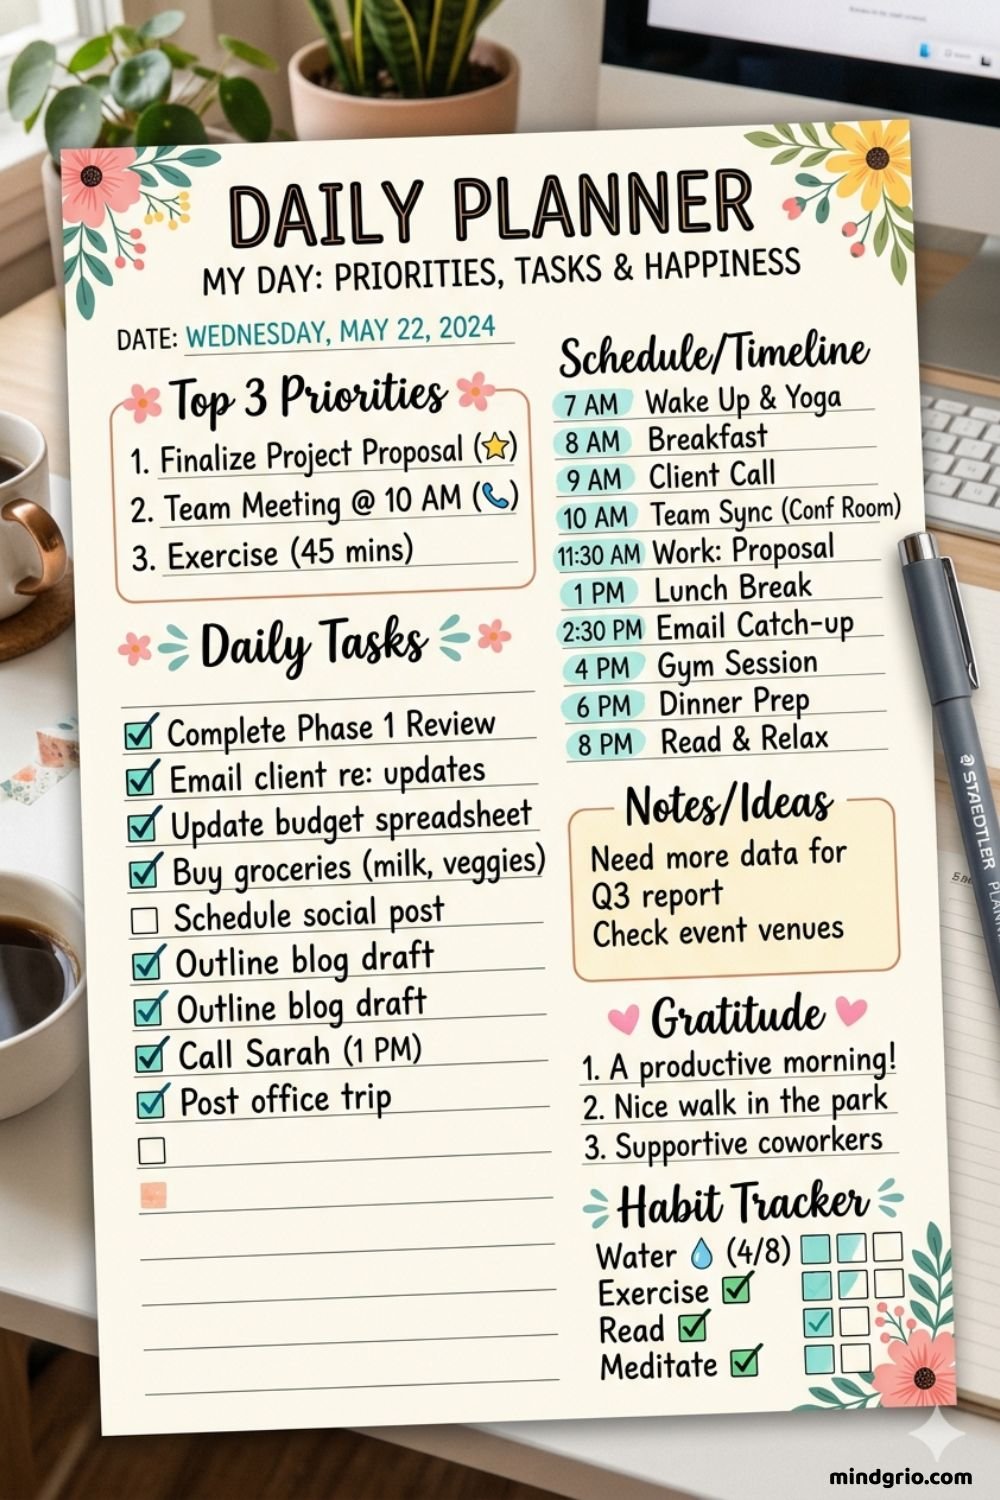 DAILY PLANNER
MY DAY: PRIORITIES, TASKS & HAPPINESS
DATE: WEDNESDAY, MAY 22, 2024
Top 3 Priorities
1. Finalize Project Proposal (⭐)
2. Team Meeting @ 10 AM (📞)
3. Exercise (45 mins)
Daily Tasks
Complete Phase 1 Review
Email client re: updates
Update budget spreadsheet
Buy groceries (milk, veggies)
Schedule social post
Outline blog draft
Outline blog draft
Call Sarah (1 PM)
Post office trip
Schedule/Timeline
7 AM Wake Up & Yoga
8 AM Breakfast
9 AM Client Call
10 AM Team Sync (Conf Room)
11:30 AM Work: Proposal
1 PM Lunch Break
2:30 PM Email Catch-up
4 PM Gym Session
6 PM Dinner Prep
8 PM Read & Relax
Notes/Ideas
Need more data for
Q3 report
Check event venues
Gratitude
1. A productive morning!
2. Nice walk in the park
3. Supportive coworkers
Habit Tracker
Water 💧 (4/8)
Exercise
Read
Meditate
STAEDTLER
mindgrio.com